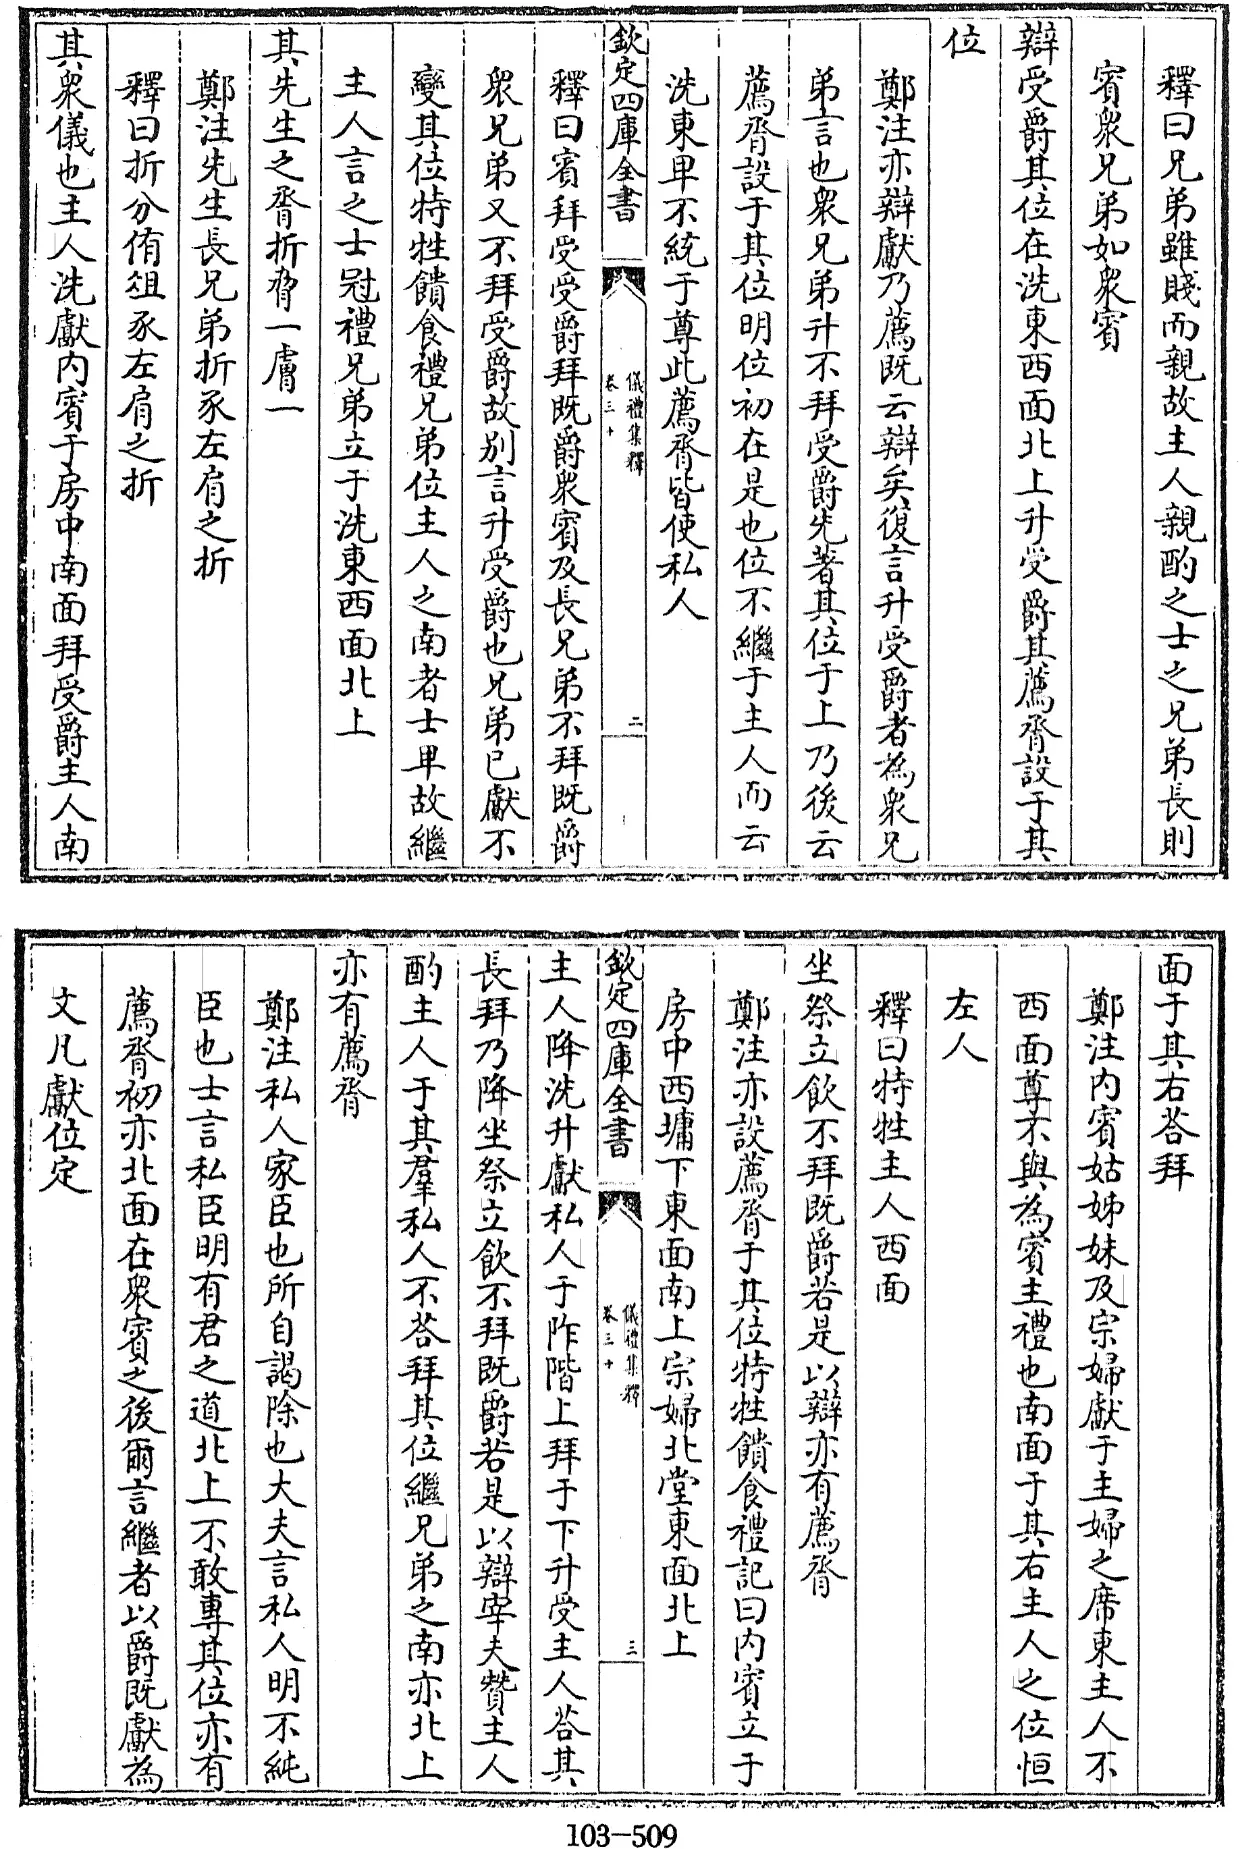 釋曰兄弟雖賤而親故主人親酌之士之兄弟長則
賓衆兄弟如衆賓
辯受爵其位在洗東西面北上升受爵其薦脀設于其
位
鄭注亦辯獻乃薦既云辯矣復言升受爵者為衆兄
弟言也衆兄弟升不拜受爵先著其位于上乃後云
薦脀設于其位明位初在是也位不繼于主人而云
洗東卑不統于尊此薦脀皆使私人
欽定四庫全書
儀禮集釋
卷三十
二
釋曰賓拜受受爵拜既爵衆賓及長兄弟不拜既爵
衆兄弟又不拜受爵故別言升受爵也兄弟已獻不
變其位特牲饋食禮兄弟位主人之南者士卑故繼
主人言之士冠禮兄弟立于洗東西面北上
其先生之脀折脅一膚一
鄭注先生長兄弟折豕左肩之折
釋曰折分侑俎豕左肩之折
其衆儀也主人洗獻内賓于房中南面拜受爵主人南
面于其右荅拜
鄭注内賓姑姊妹及宗婦獻于主婦之席東主人不
西面尊不與為賓主禮也南面于其右主人之位恒
左人
釋曰特牲主人西面
坐祭立飲不拜既爵若是以辯亦有薦脀
鄭注亦設薦脀于其位特牲饋食禮記曰内賓立于
房中西墉下東面南上宗婦北堂東面北上
欽定四庫全書
儀禮集釋
卷三十
三
主人降洗升獻私人于阼階上拜于下升受主人荅其
長拜乃降坐祭立飲不拜既爵若是以辯宰夫贊主人
酌主人于其羣私人不荅拜其位繼兄弟之南亦北上
亦有薦脀
鄭注私人家臣也所自謁除也大夫言私人明不純
臣也士言私臣明有君之道北上不敢專其位亦有
薦脀初亦北面在衆賓之後爾言繼者以爵既獻為
文凡獻位定
103-509